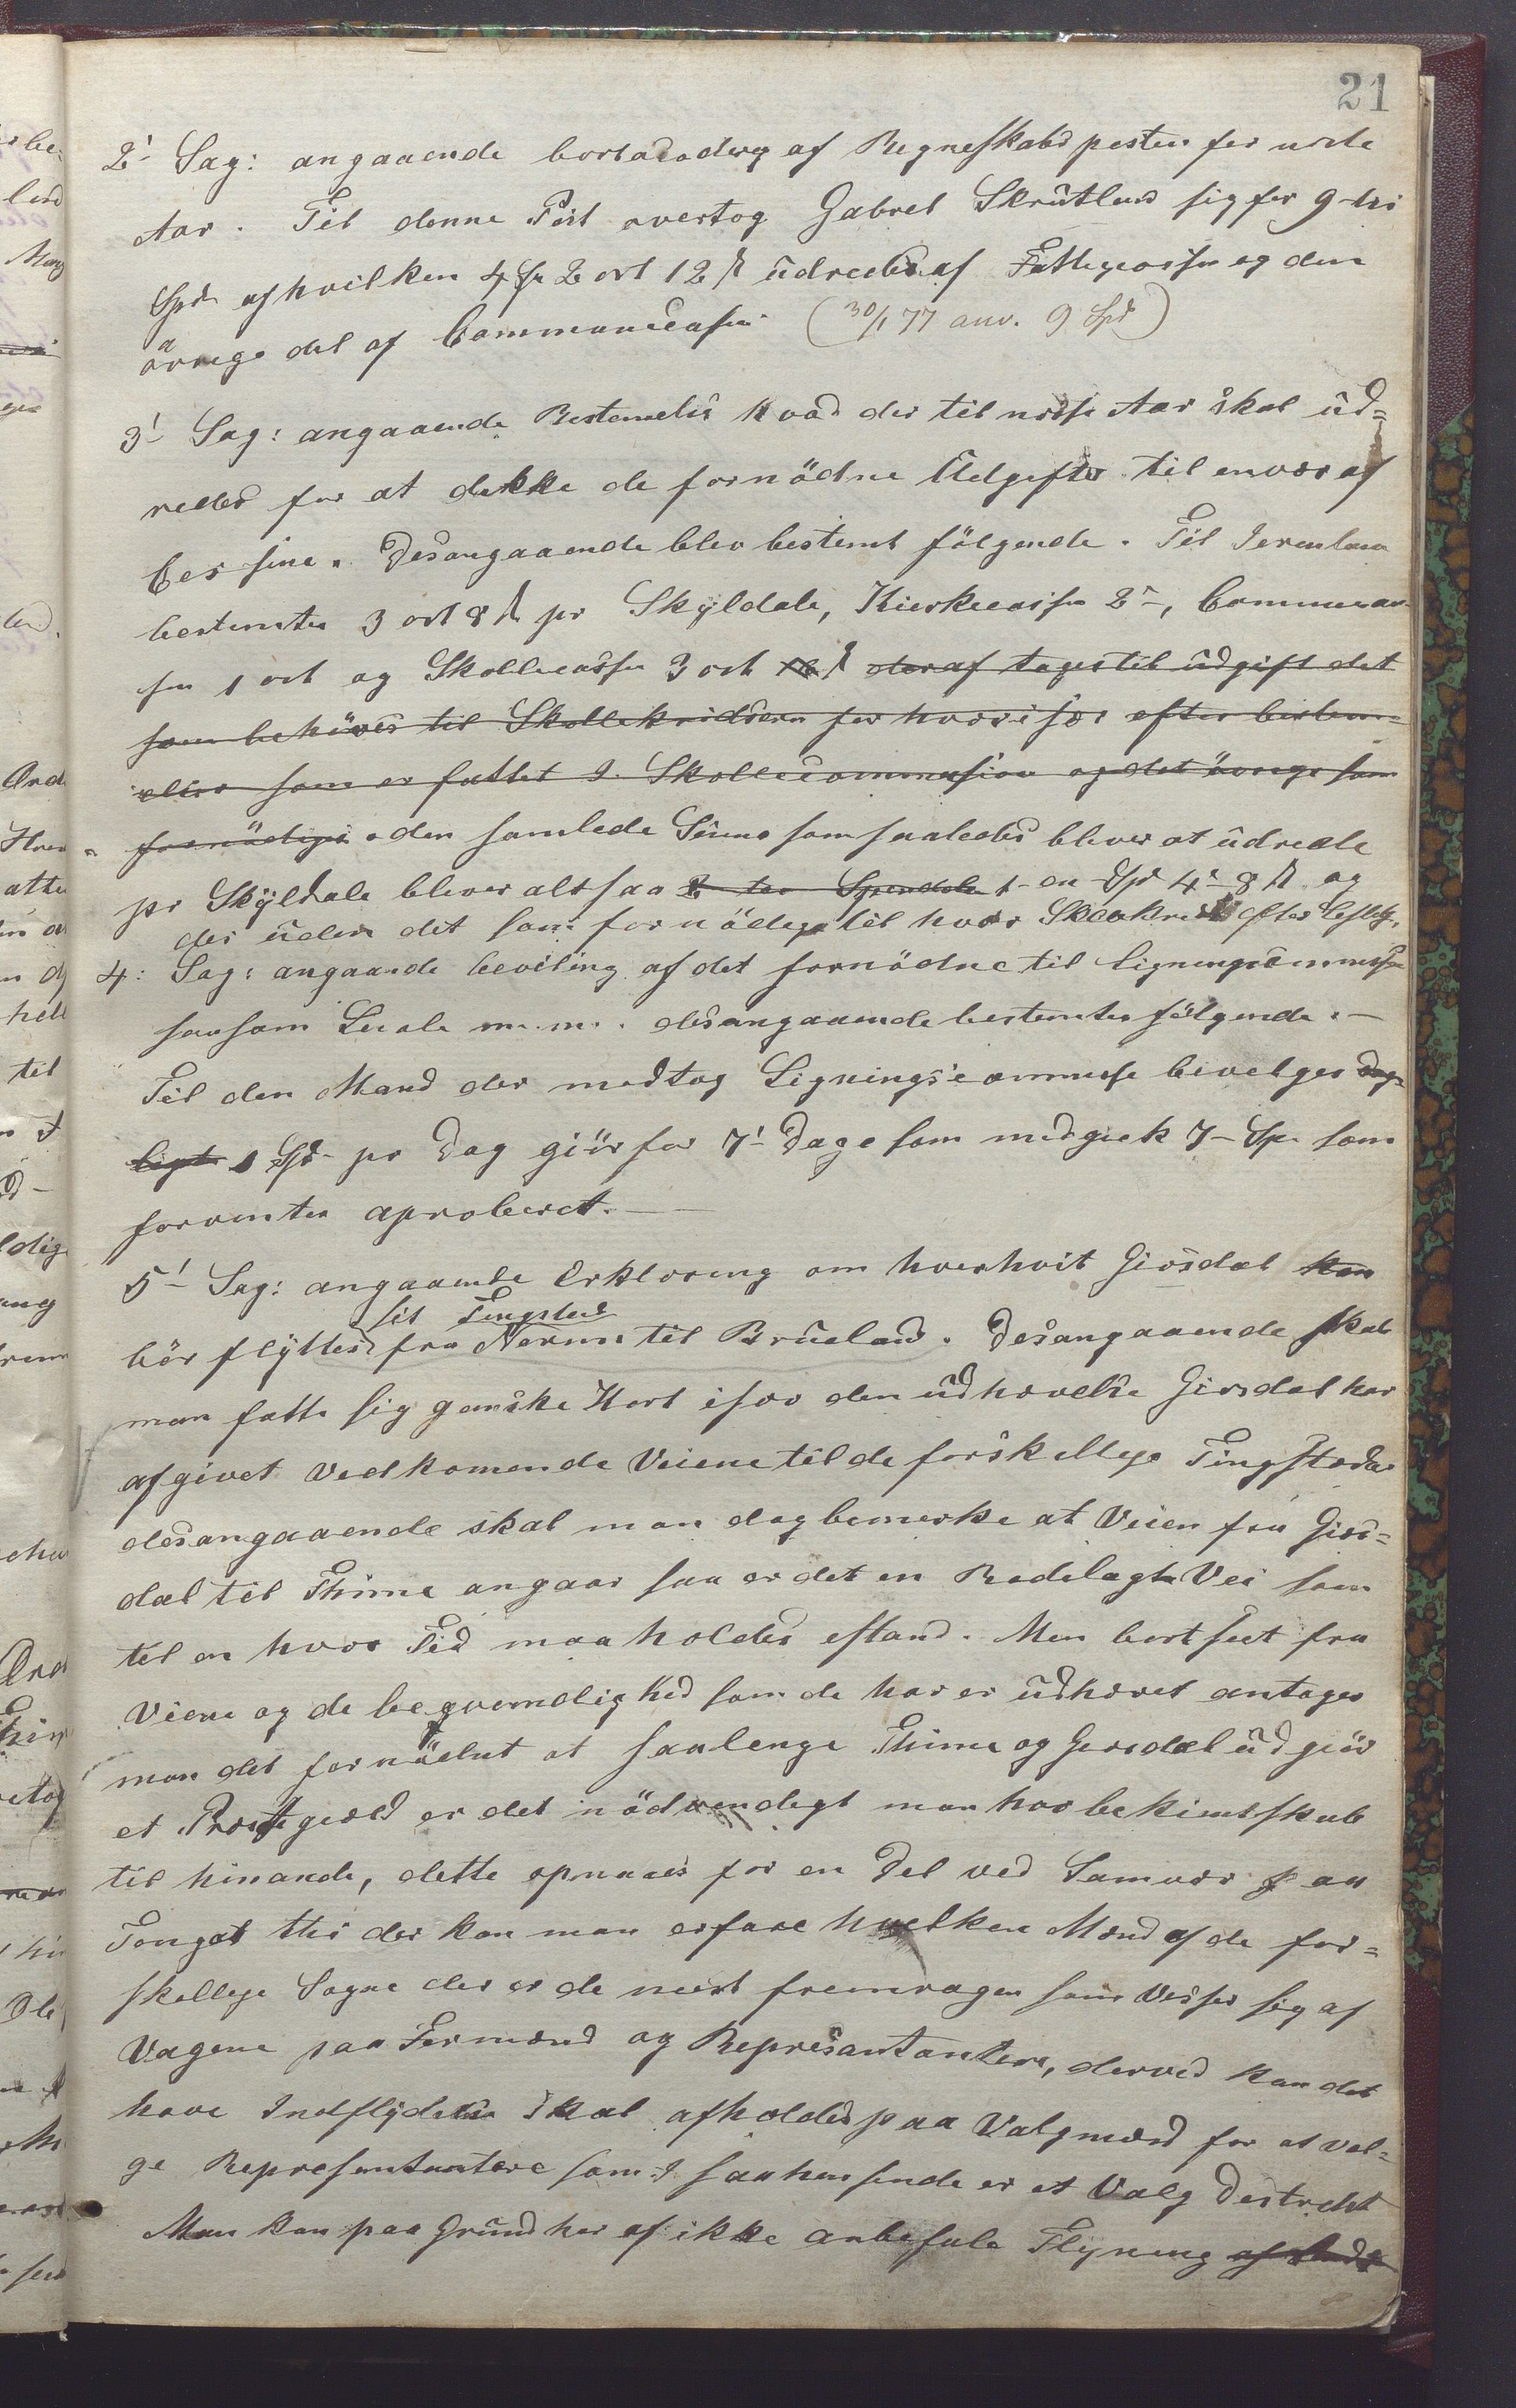 21
2! Sag: angaaende bortadodering af Regneskabs posten for neste
Aar. Til denne Post overtog Gabrel Skrutlund sig for 9-ni
Spd af hvilken 4 Sp 2 ort 12 ß udredes af Fattigcassen og den
övrege del af Communecassen (30/1 77 anv. 9 Spd)
3! Sag: angaaende Bestemelse hvad der til neste Aar skal ud=
redes for at dekke de fornödne Udgifter til enver af
Cessine. Desangaaende blev bestemt fölgende. Til
bestemtes 3 ort 8 ß pr Skyldale, Kierkecassen 2-, Communcas
sen 1 ort og Skollecassen 3 ort ß deraf tages til udgift det
som behöves til Skollekridsern for hver især efter bestem=
elser som er fattet I. Skollecommusion og det övrege som
fornödiges den samlede Suma som saaledes bliver at udrede
pr Skyldale bliver altsaa 2 to Spendale 1 - en Spd 4 - 8 ß og
der uden det som fornödiges til hver Skolekreds efter
4: Sag: angaaende beviling af det fornödne til Ligningscommusjon
saasom Locale m.m. desangaaende bestemtes fölgende. —
Til den Mand der modtog Ligningscommusse bevelges dag=
ligt 1 Spd pr Dag giör for 7! Dage som medgick 7 - Sp. som
forventes aproberet. —
5! Sag: angaaende Erklæring om hvorhvit Giesdal kan
sit Tingsted
bör flyttes fra Nærum til Brueland. Desangaaende skal
man fatte sig ganske Kort især den udhævelse Giesdal har
afgivet Vedkomende Veiene til de forskellege Tingstæder
desangaaende skal man dog bemerke at Veien fra Gies=
dal til Thime angaar saa er det en Rodelagt Vei som
til en hver Tid maa holdes istand. Men bortseet fra
Veiene og de beqvemdlighed som de har er udhævet antages
man det fornödent at saalenge Thime og Giesdal udgiör
et Prestegield er det nödvendigt man har bekientskab
til hinande, dette opnaaes for en Del ved Samvær paa
Tinget thi der kan man erfare hvelken Mænd af de for=
skellege Sogne der er de meest fremragen som Visser sig af
Vagene paa Formænd og Represantantere, derved kan det
have Indflydelse skal afholdes paa Valgmænd for at vel=
ge Represantantere som i saahenseende er et Valg Destrekt
Man kan paa Grund her af ikke anbefale Flyning af